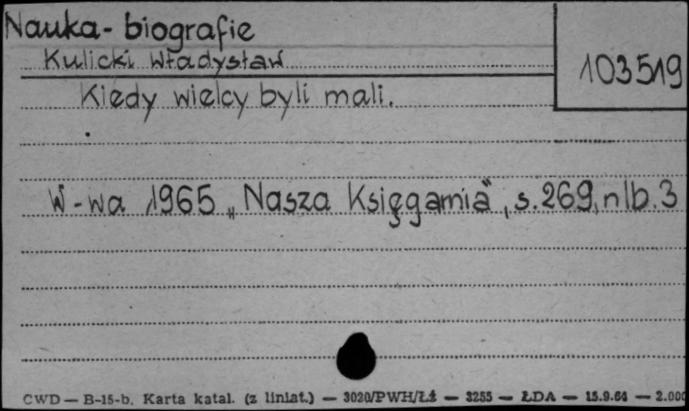 Nauka - biografie
Kulicki Władysław
103519
Kiedy wielcy byli mali.
W-wa 1965 „Nasza Księgarnia", s.269, nlb.3
CWD — B-15-b. Karta katal. (z liniat.) — 3020/PWH/Łż — 3255 — ŁDA — 15.9.64 — 2.000